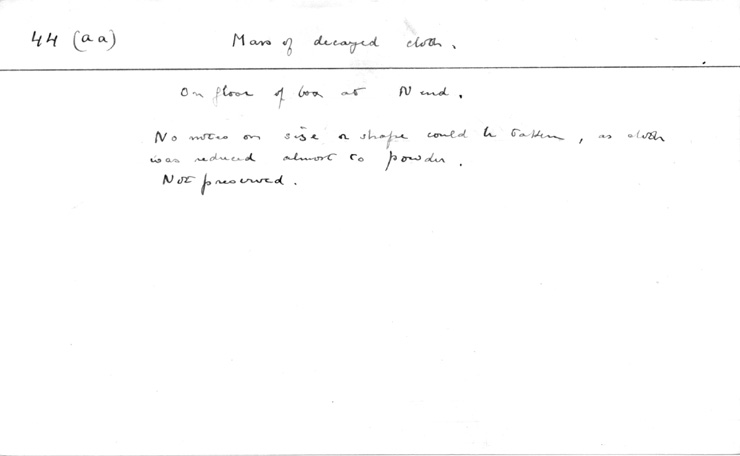 44 (aa) Mass of decayed cloth.
On floor of box at N end.
No notes on size or shape could be taken, as cloth
was reduced almost to powder.
Not preserved.